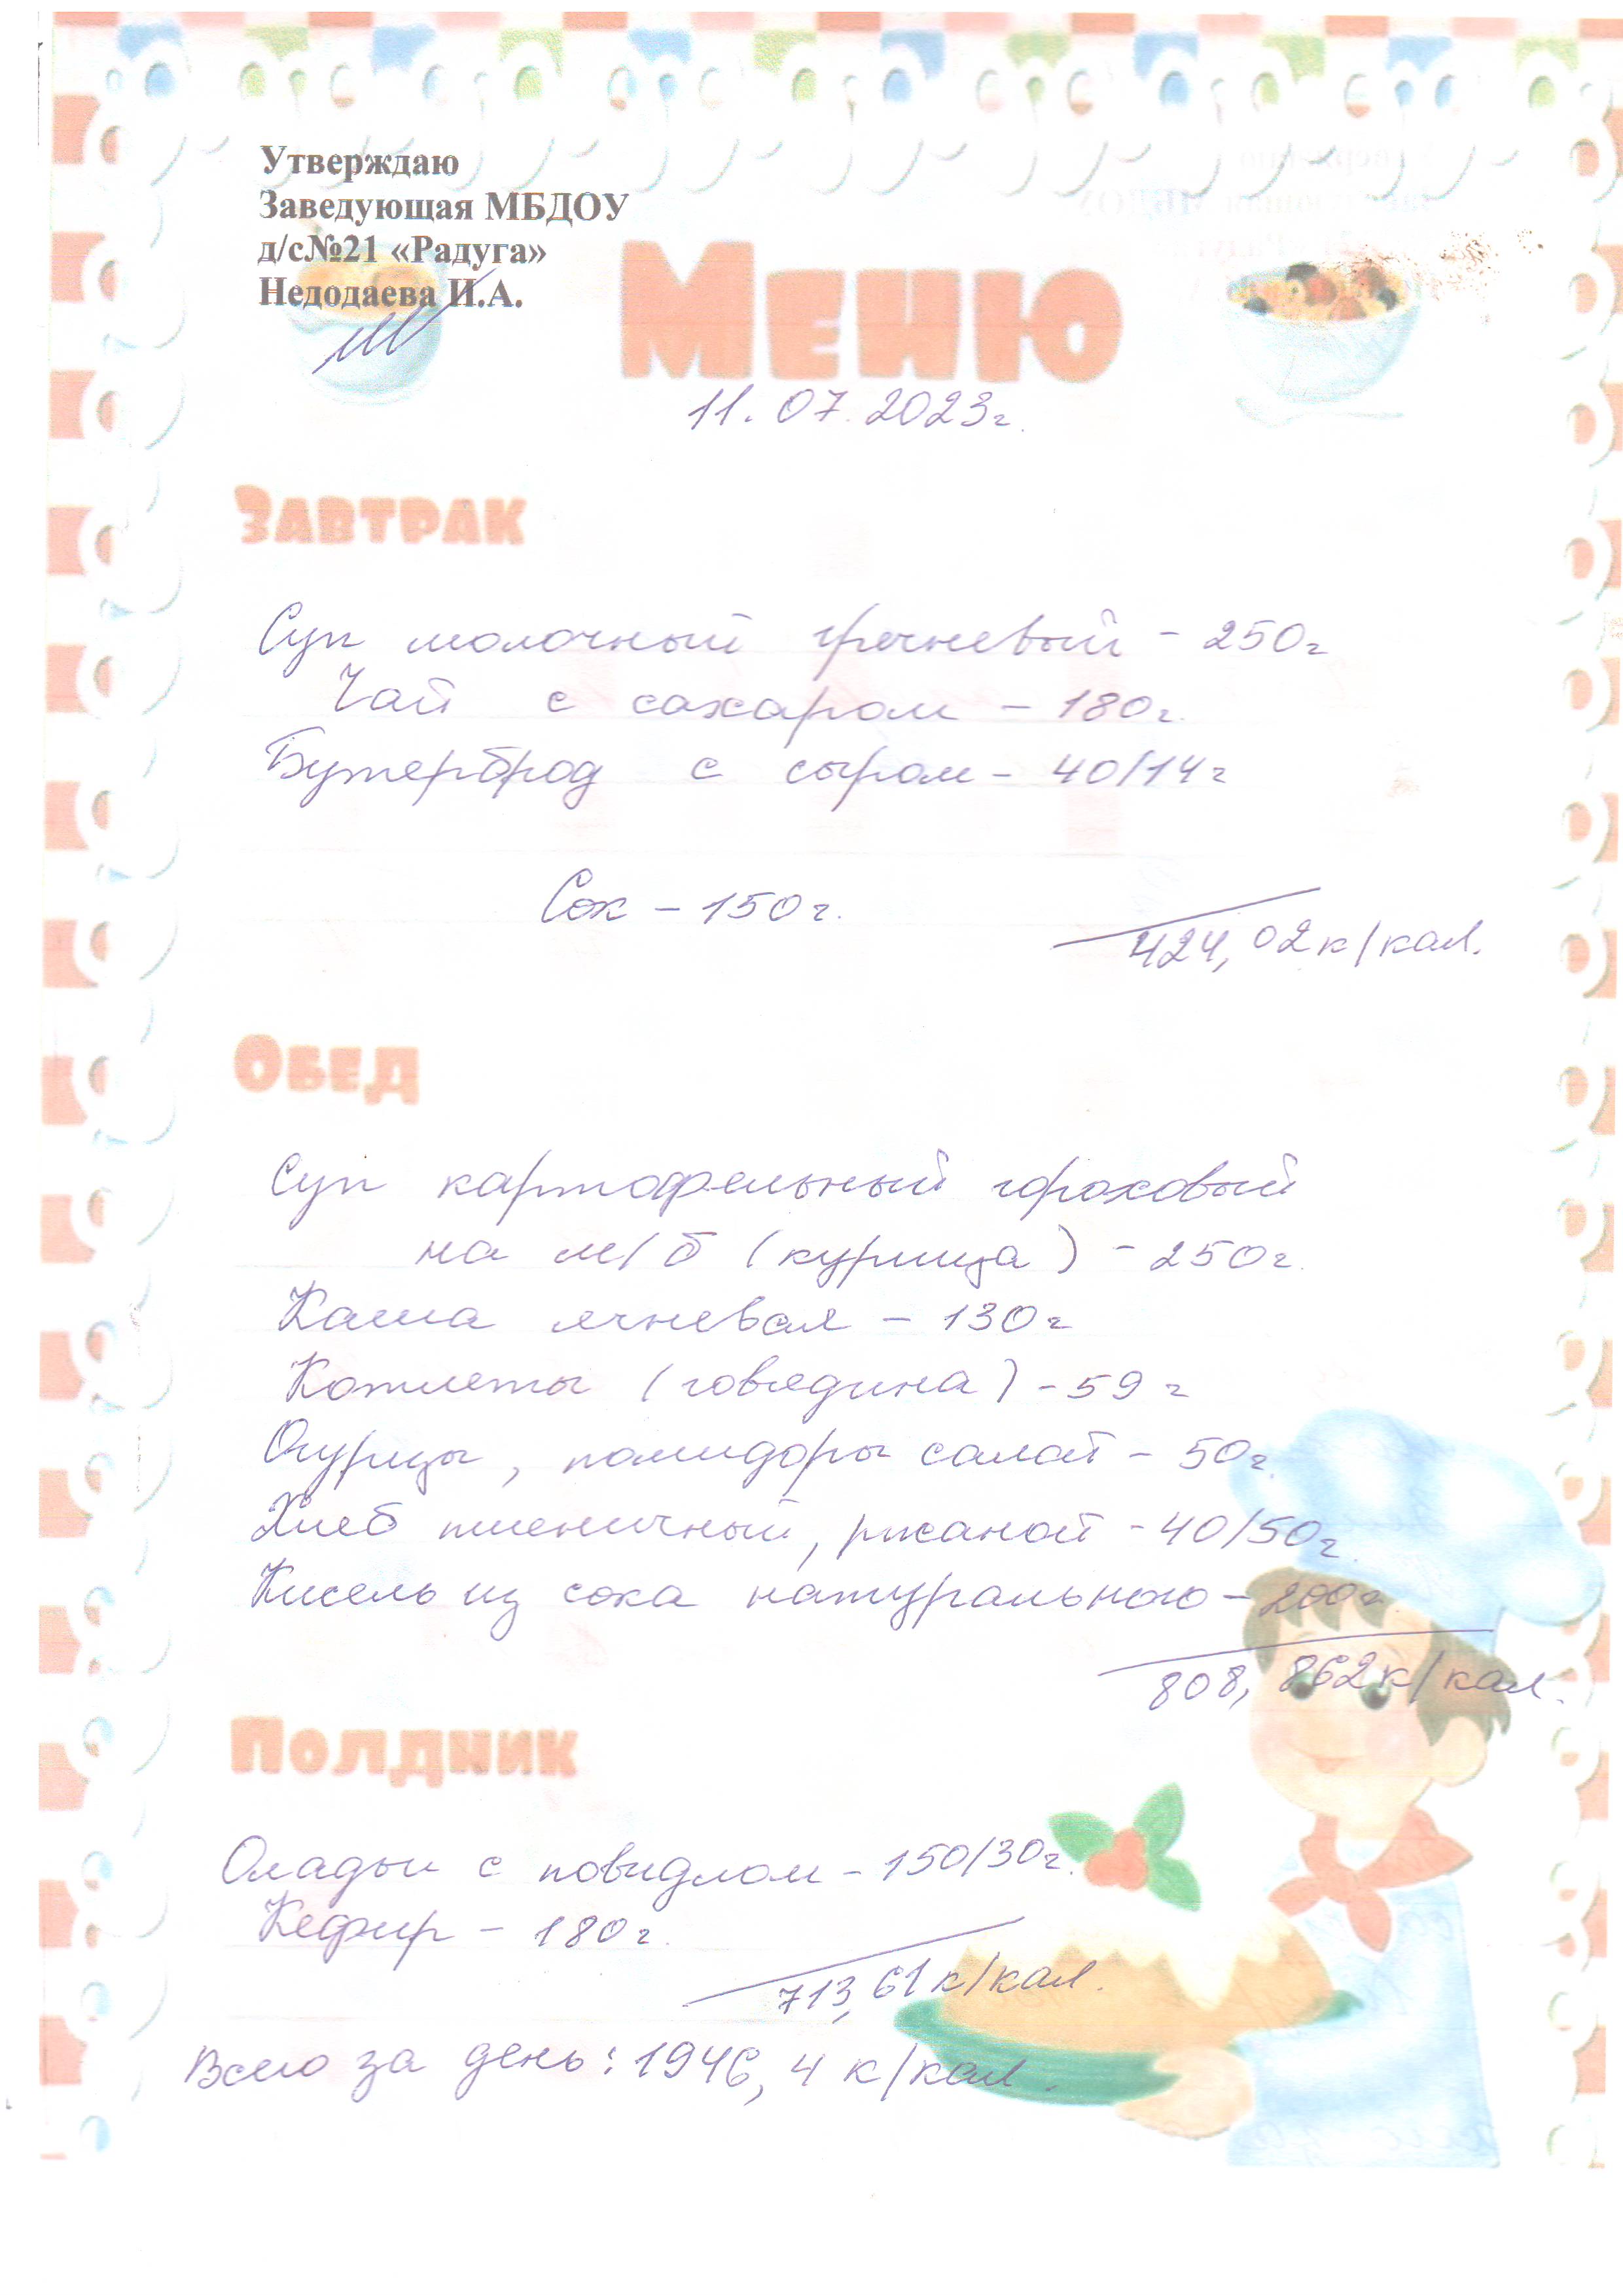 Утверждаю
Заведующая МБДОУ
д/с№21 «Радуга»
Недодаева И.А.
Меню
11.07.2023г.
Завтрак
Суп молочный гречневый - 250г
Чай с сахаром - 180г.
Бутерброд с сыром - 40/14г
Сок - 150г.
424,02 к/кал.
Обед
Суп картофельный гороховый
на м/б (курица) - 250г.
Каша ячневая - 130г
Котлеты (говядина) - 59г
Огурцы, помидоры салат - 50г.
Хлеб пшеничный, ржаной - 40/50г.
Кисель из сока натурального - 200г.
808,862 к/кал.
Полдник
Оладьи с повидлом - 150/30г.
Кефир - 180г.
713,61 к/кал.
Всего за день: 1946,4 к/кал.